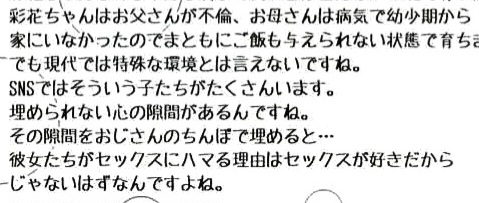 彩花ちゃんはお父さんが不倫、お母さんは病気で幼少期から
家にいなかったのでまともにご飯も与えられない状態で育ちま
でも現代では特殊な環境とは言えないですね。
SNSではそういう子たちがたくさんいます。
埋められない心の隙間があるんですね。
その隙間をおじさんのちんぽで埋めると…
彼女たちがセックスにハマる理由はセックスが好きだから
じゃないはずなんですよね。